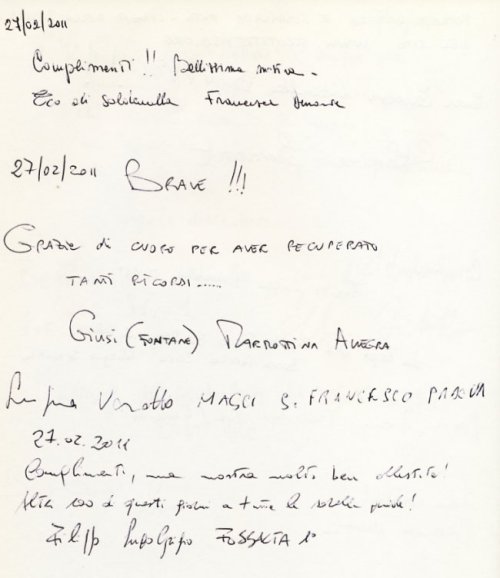 27/02/2011
Complimenti !! Bellissima mostra.
Eco di Francesca
27/02/2011 BRAVE !!!
GRAZIE di CUORE PER AVER RECUPERATO
TANTI RICORDI......
GIUSI (FONTANE) MARMOTTINA ALLEGRA
Varotto MASCI S. FRANCESCO PADOVA
27.02.2011
Complimenti, una mostra molto ben allestita!
Altri 100 di questi giorni a tutte le !
Filippo FOSSALTA 1°